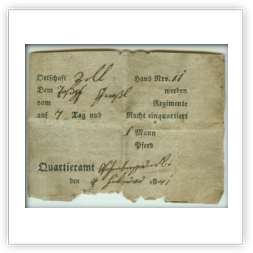 Ortschaft Zell Haus Nro. 11
Dem werden
vom Regimente
auf 7 Tag und Nacht einquartiert
1 Mann
Pferd
Quartieramt
den 4